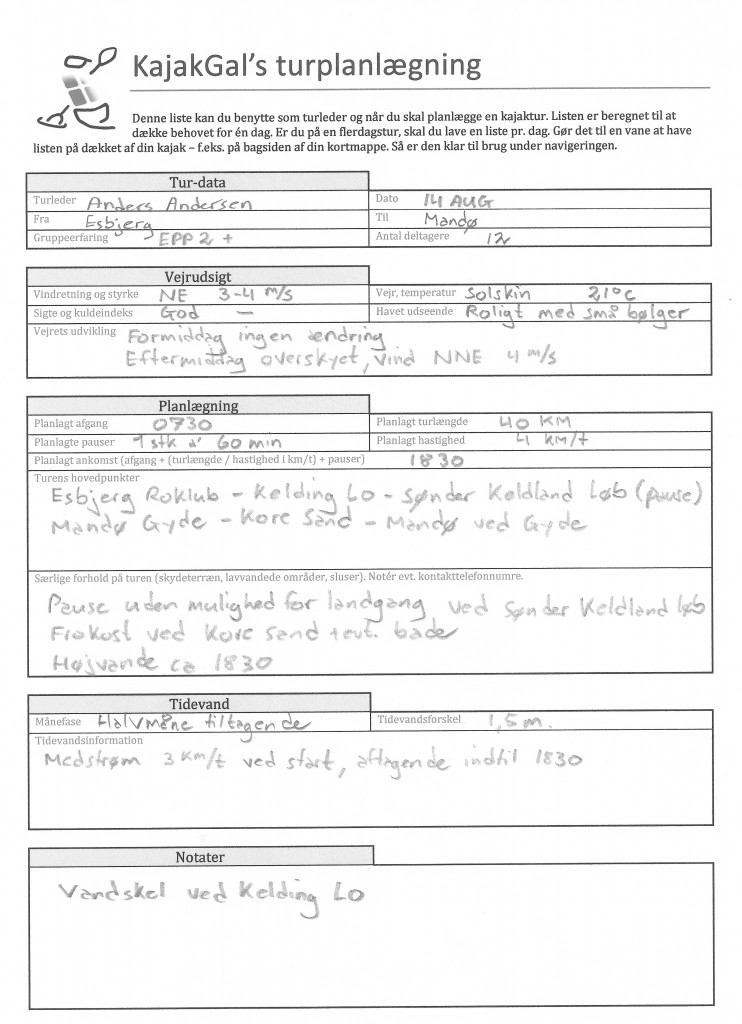 KajakGal's turplanlægning
Denne liste kan du benytte som turleder og når du skal planlægge en kajaktur. Listen er beregnet til at
dække behovet for én dag. Er du på en flerdagstur, skal du lave en liste pr. dag. Gør det til en vane at have
listen på dækket af din kajak – f.eks. på bagsiden af din kortmappe. Så er den klar til brug under navigeringen.
Tur-data
Turleder Anders Andersen
Dato 14 AUG
Fra Esbjerg
Til Mandø
Gruppeerfaring EPP 2 +
Antal deltagere 12
Vejrudsigt
Vindretning og styrke NE 3-4 m/s
Vejr, temperatur Solskin 21°C
Sigte og kuldeindeks God —
Havet udseende Roligt med små bølger
Vejrets udvikling Formiddag ingen ændring
Eftermiddag overskyet, vind NNE 4 m/s
Planlægning
Planlagt afgang 0730
Planlagt turlængde 40 KM
Planlagte pauser 1 stk a' 60 min
Planlagt hastighed 4 KM/t
Planlagt ankomst (afgang + (turlængde / hastighed i km/t) + pauser) 1830
Turens hovedpunkter
Esbjerg Roklub - Kelding Lo - Sønder Keldland Løb (pause)
Mandø Gyde - Kore Sand - Mandø ved Gyde
Særlige forhold på turen (skydeterræn, lavvandede områder, sluser). Notér evt. kontakttelefonnumre.
Pause uden mulighed for landgang ved Sønder Keldland løb
Frokost ved Kore Sand + evt. bade
Højvande ca 1830
Tidevand
Månefase Halvmåne tiltagende
Tidevandsforskel 1,5 m.
Tidevandsinformation
Medstrøm 3 KM/t ved start, aftagende indtil 1830
Notater
Vandskel ved Kelding Lo